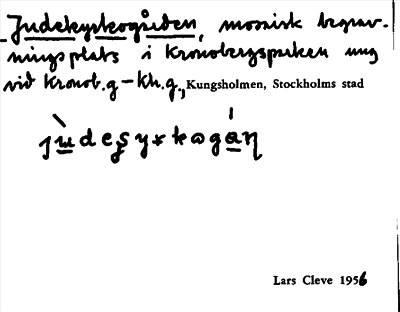 Judekyrkogården, mosaisk begrav-
ningsplats i Kronobergsparken ung
vid Kronob.g – Kh.g., Kungsholmen, Stockholms stad
Lars Cleve 1956